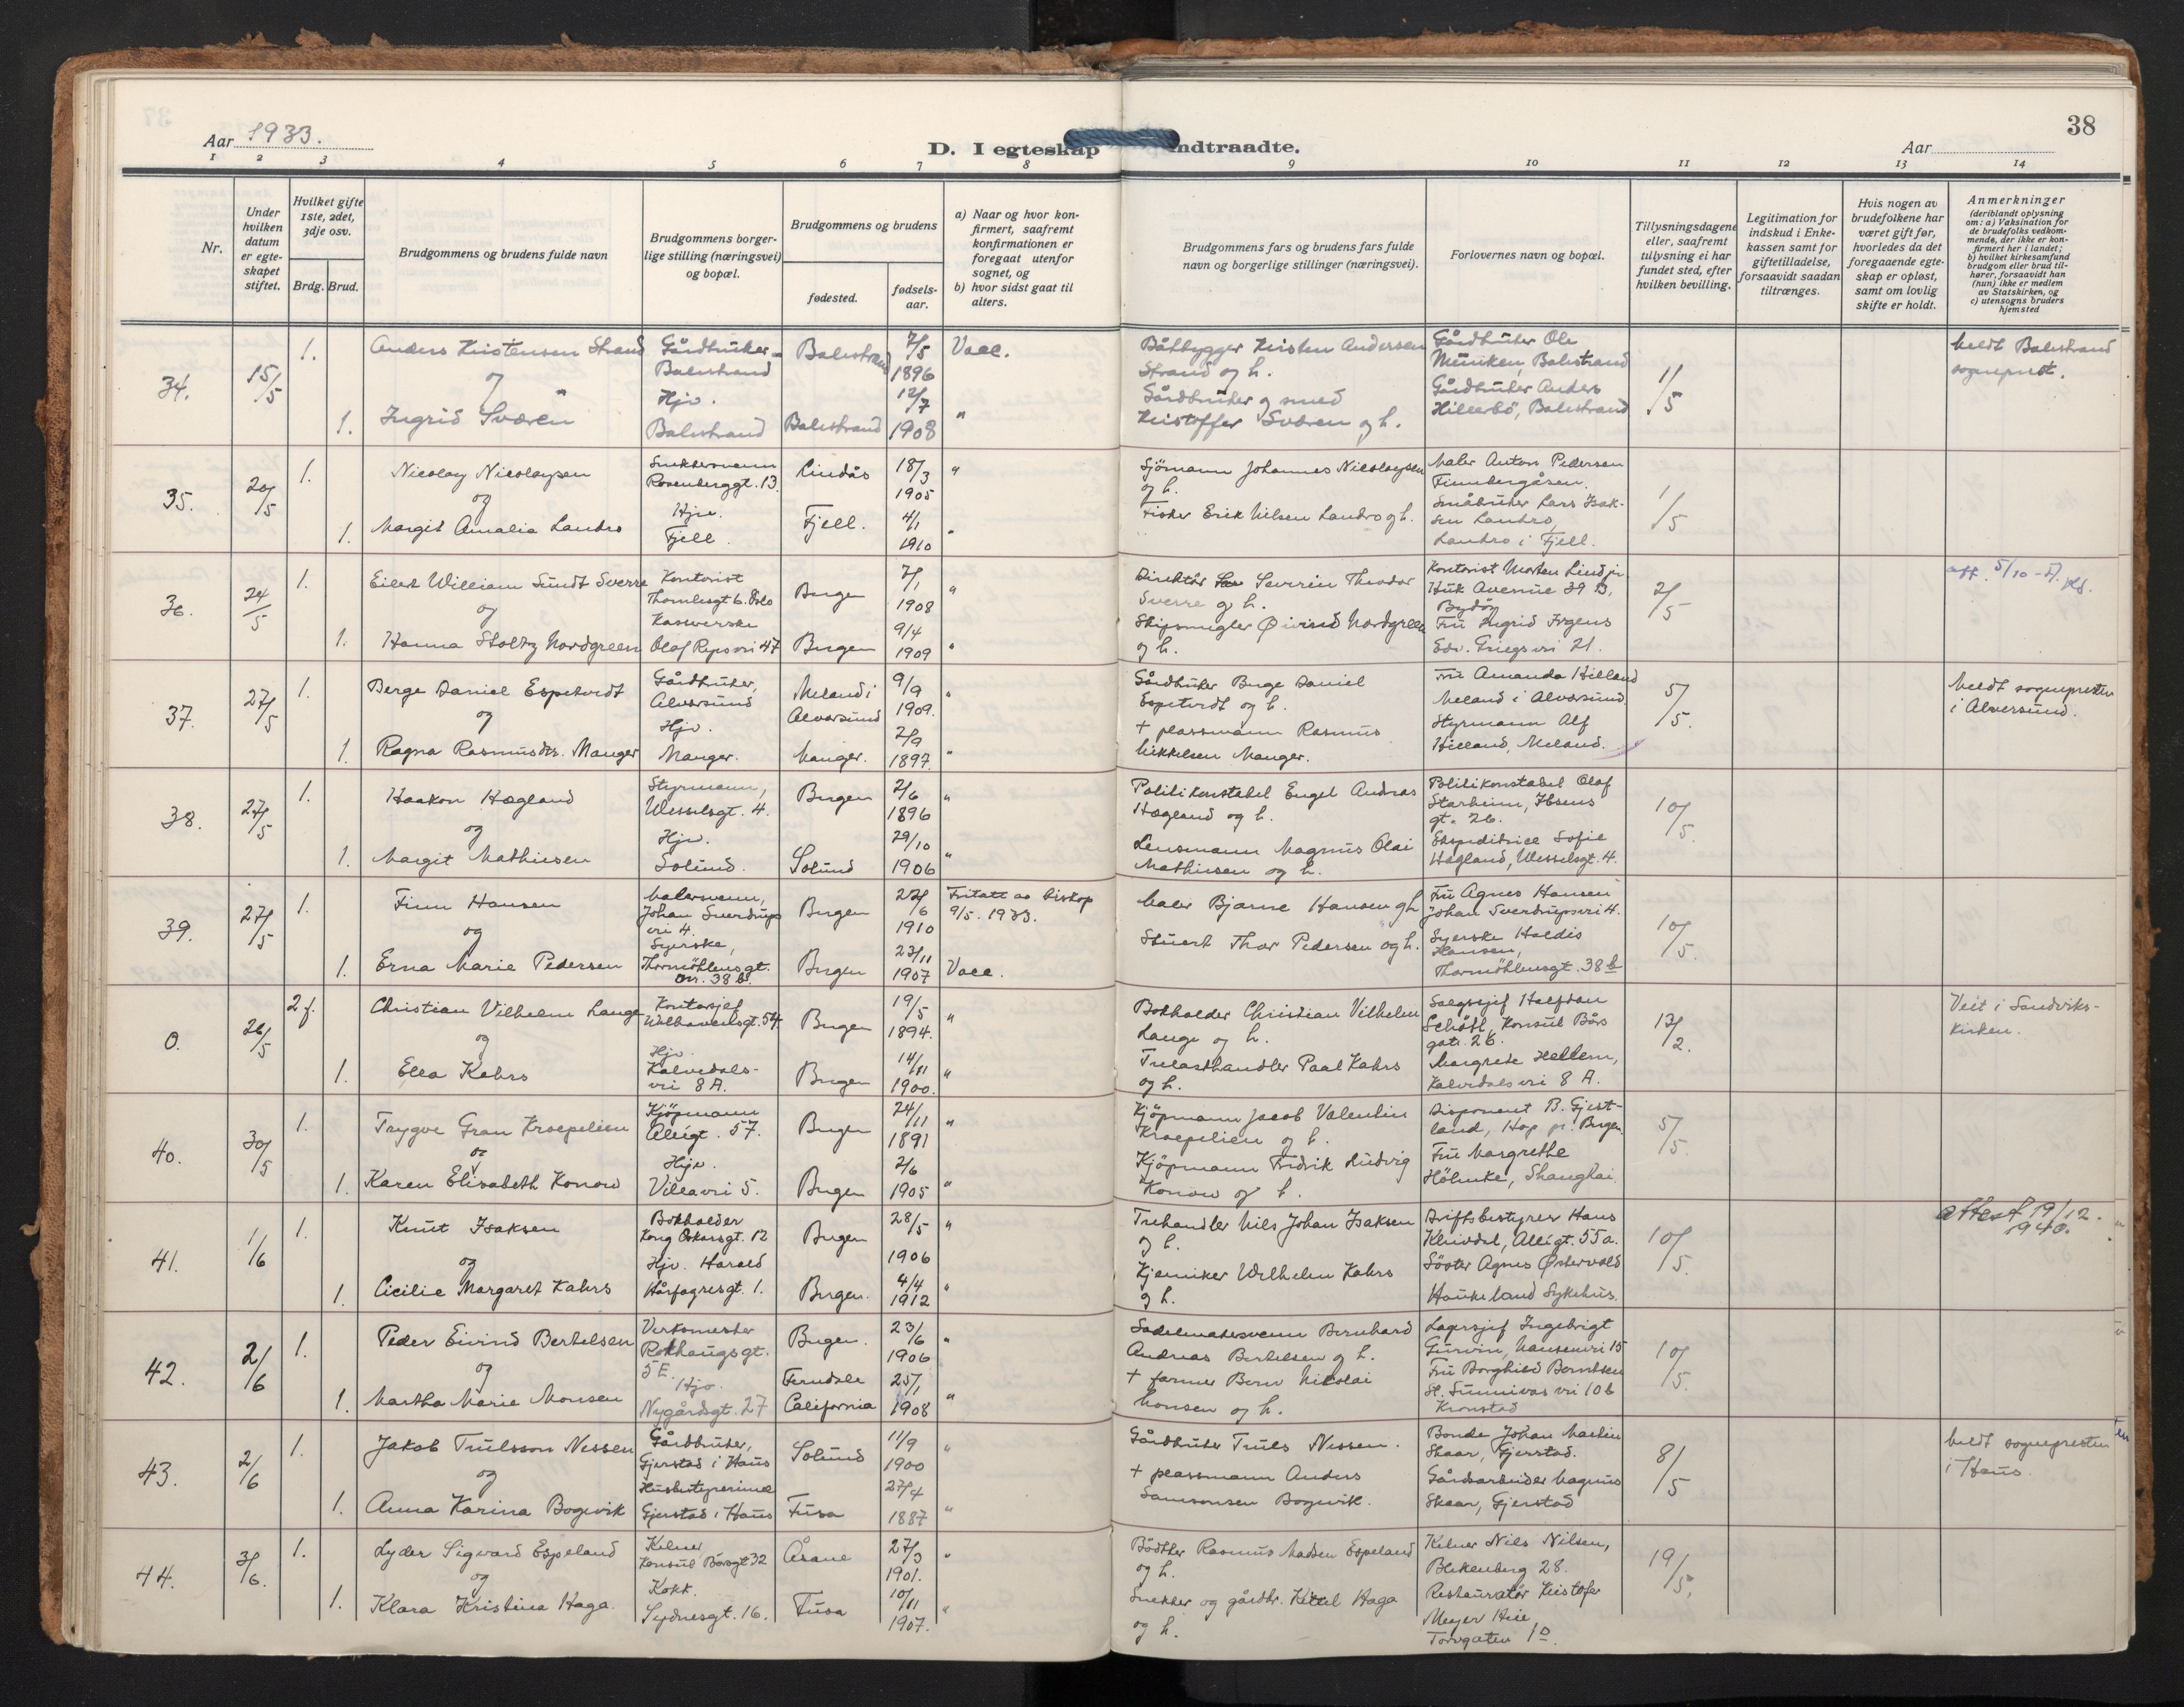 38
Aar 1933.
D. I egteskap indtraadte.
Aar
1 2 3 4 5 6 7 8 9 10 11 12 13 14
Nr.
Under hvilken datum er egteskapet stiftet.
Hvilket gifte 1ste, 2det, 3dje osv.
Brdg. Brud.
Brudgommens og brudens fulde navn
Brudgommens borgerlige stilling (næringsvei) og bopæl.
Brudgommens og brudens
fødested.
fødselsaar.
a) Naar og hvor konfirmert, saafremt konfirmationen er foregaat utenfor sognet, og
b) hvor sidst gaat til alters.
Brudgommens fars og brudens fars fulde navn og borgerlige stillinger (næringsvei).
Forlovernes navn og bopæl.
Tillysningsdagene eller, saafremt tullysning ei har fundet sted, efter hvilken bevilling.
Legitimation for indskud i Enkekassen samt for giftetilladelse, forsaavidt saadan tiltrænges.
Hvis nogen av brudefolkene har været gift før, hvorledes da det foregaaende egteskap er opløst, samt om lovlig skifte er holdt.
Anmerkninger
(deriblandt oplysning om: a) Vaksination for de brudefolks vedkommende, der ikke er konfirmert her i landet; b) hvilket kirkesamfund brudgom eller brud tilhører, forsaavidt han (hun) ikke er medlem av Statskirken, og c) utensogns bruders hjemsted
34. 15/5 1. Anders Kristensen Strand Gårdbruker Balestrand Balestrand 7/5 1896 Vacc.
og
1. Ingrid Sværen Hjv. Balestrand Balestrand 12/7 1908 "
Båtbygger Kristen Andersen Strand og h.
Gårdbruker og smed Kristoffer Sværen og h.
Gårdbruker Ole Munken, Balestrand
Gårdbruker Anders Hillerbö, Balestrand
1/5
Meldt Balestrand sogneprest.
35. 20/5 1. Nicolay Nicolaysen Snekkersvenn Rosenberggt. 13. Lindås 18/3 1905 "
og
1. Margit Amalia Landro Hjv. Fjell. Fjell. 4/1 1910 "
Sjömann Johannes Nicolaysen og h.
Fisker Erik Nilsen Landro og h.
Maler Anton Pedersen Finnbergåsen.
Småbruker Lars Isaksen Landro, Landro i Fjell.
1/5
36. 24/5 1. Eilert William Sundt Sverre Kontorist Thomlesgt 6. Oslo Bergen 7/1 1908 "
og
1. Hanna Stoltz Nordgreen Kasserske Olaf Ryes vei 47 Bergen 9/4 1909 "
Direktör Severin Theodor Sverre og h.
Skipsmegler Øivind Nordgreen og h.
Kontorist Morten Lind jr. Huk Avenue 39 B, Bygdöy
Fru Ingrid Irgens Edv. Griegs vei 21.
2/5
att. 5/10-
37. 27/5 1. Berge Daniel Espetvedt Gårdbruker, Alversund Meland i Alversund 9/9 1909. "
og
1. Ragna Rasmusdtr. Manger Hjv. Manger. Manger. 2/9 1897. "
Gårdbruker Berge Daniel Espetvedt og h.
+ plassmann Rasmus Mikkelsen Manger.
Fru Amanda Hilland Meland i Alversund.
Styrmann Alf Hilland, Meland.
5/5.
Meldt sognepresten i Alversund.
38. 27/5 1. Haakon Hægland Styrmann, Wesselsgt. 4. Bergen 2/6 1896 "
og
1. Margit Mathiesen Hjv. Solund. Solund 29/10 1906 "
Politikonstabel Engel Andreas Hægland og h.
Lensmann Magnus Olai Mathiesen og h.
Politikonstabel Olaf Starheim, Ibsens gt. 26.
Ekspeditrice Sofie Hægland, Wesselsgt. 4.
10/5.
39. 27/5 1. Finn Hansen Malersvenn, Johan Sverdrups vei 4. Bergen 27/6 1910 Fritatt av biskop 9/5. 1933.
og
1. Erna Marie Pedersen Syerske, Thormöhlensgt. 38 b. Bergen 23/11 1907 Vacc.
Maler Bjarne Hansen og h.
Stuert Thor Pedersen og h.
Fru Agnes Hansen Johan Sverdrupsvei 4.
Syerske Haldis Hansen, Thormöhlensgt. 38 b
10/5.
0. 26/5 2 f. Christian Vilhelm Lange Kontorsjef Welhavensgt. 54. Bergen 19/5 1894. "
og
1. Ella Kahrs Hjv. Kalvedalsvei 8 A. Bergen 14/11 1900. "
Bokholder Christian Vilhelm Lange og h.
Trelasthandler Paal Kahrs og h.
Salgssjef Halfdan Schött, Konsul Börs gate 26.
Margrete Hellem, Kalvedalsvei 8 A.
13/2.
Viet i Sandvikskirken.
40. 30/5 1. Trygve Gran Kroepelien Kjöpmann Allégt. 57. Bergen 24/11 1891 "
og
1. Karen Elisabeth Konow Hjv. Villavei 5. Bergen 2/6 1905 "
Kjöpmann Jacob Valentin Kroepelien og h.
Kjöpmann Fredrik Ludvig Konow og h.
Disponent B. Gjestland, Hop pr. Bergen.
Fru Margrethe Höhnke, Shanghai.
5/5.
41. 1/6 1. Knut Isaksen Bokholder Kong Oskarsgt. 12 Bergen 28/5 1906 "
og
1. Cicilie Margaret Kahrs Hjv. Harald Hårfagresgt. 1. Bergen. 4/4 1912 "
Trehandler Nils Johan Isaksen og h.
Kjemiker Wilhelm Kahrs og h.
Driftsbestyrer Hans Kleivdal, Allégt. 55a.
Söster Agnes Østervold Haukeland Sykehus.
10/5.
attest 19/12. 1940.
42. 2/6 1. Peder Eivind Bertelsen Verksmester Rothaugsgt. 5E. Bergen. 23/6 1906 "
og
1. Martha Marie Monsen Hjv. Nygårdsgt. 27 Ferndale California 25/1 1908 "
Sadelmakersvenn Bernhard Andreas Bertelsen og h.
+ farmer Bern Nikolai Monsen og h.
Lagersjef Ingebrigt Gurvin, Hansenvei 15
Fru Borghild Berntsen St. Sunnivas vei 10b Kronstad
10/5.
43. 2/6 1. Jakob Trulsson Nessen Gårdbruker, Gjerstad i Haus Solund 11/9 1900 "
og
1. Anna Karina Bogevik Husbestyrerinne Gjerstad i Haus Fusa 27/4 1887 "
Gårdbruker Truls Nessen.
+ plassmann Anders Samsonsen Bogevik.
Bonde Johan Martin Skaar, Gjerstad.
Gårdsarbeider Magnus Skaar, Gjerstad
8/5
Meldt sognepresten i Haus.
44. 3/6. 1. Lyder Sigvard Espeland Kelner, Konsul Börsgt 32 Åsane 27/3 1901. "
og
1. Klara Kristina Haga Kokk. Sydnesgt. 16. Fusa 10/11 1907. "
Bödker Rasmus Madsen Espeland og h.
Snekker og gårdbr. Kittel Haga og h.
Kelner Nils Nilsen, Blekenberg 28.
Restauratör Kristofer Meyer Heie Torvgaten 1D.
19/5.